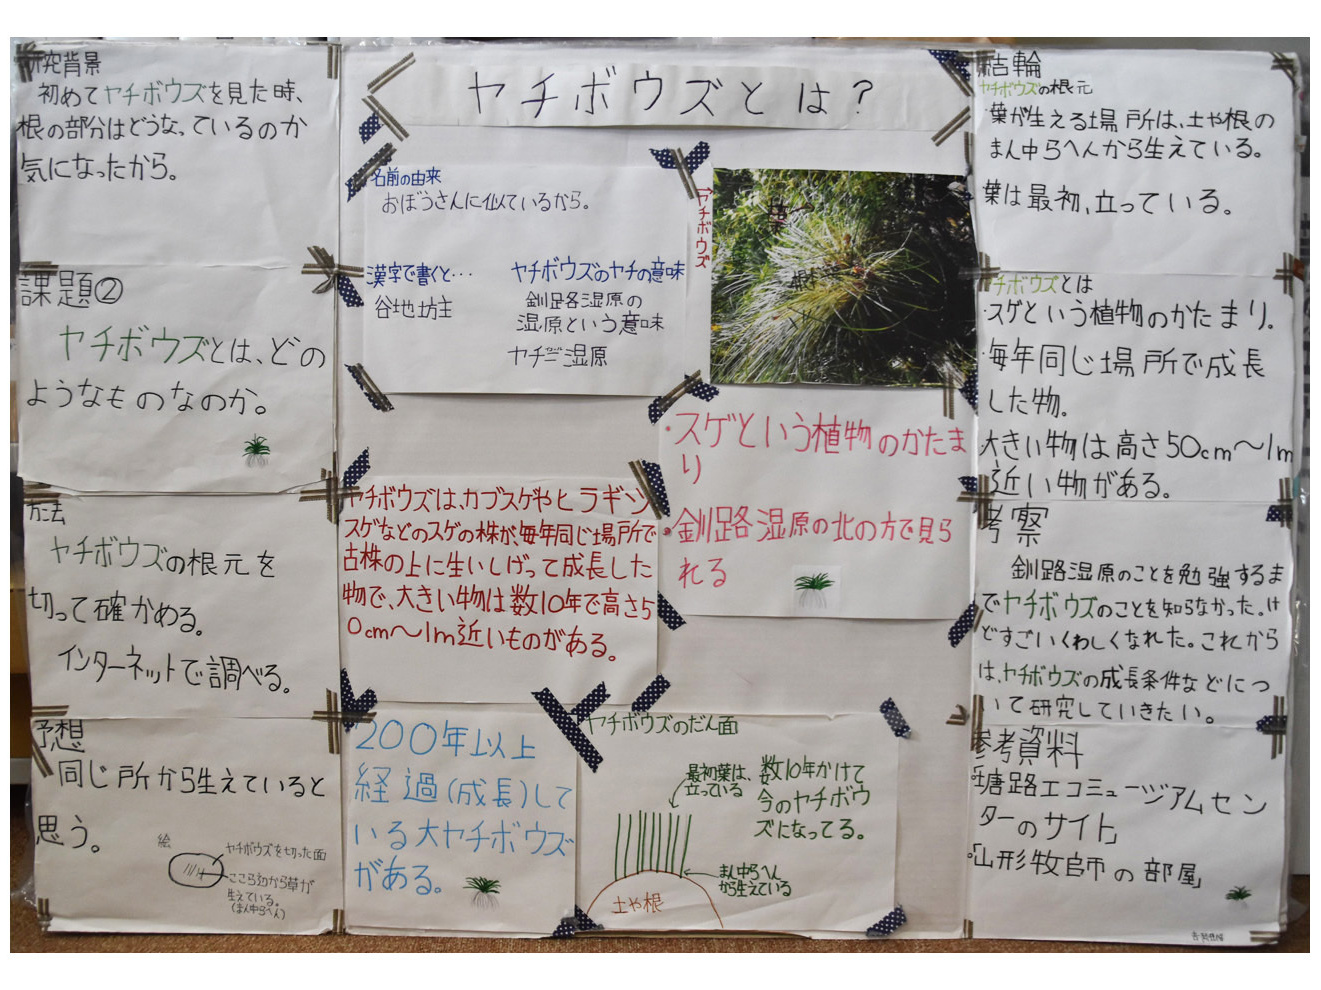 ヤチボウズとは?
研究背景
初めてヤチボウズを見た時、
根の部分はどうなっているのか
気になったから。
課題②
ヤチボウズとは、どの
ようなものなのか。
方法
ヤチボウズの根元を
切って確かめる。
インターネットで調べる。
予想
同じ所から生えていると
思う。
絵
ヤチボウズを切った面
ここら辺から草が
生えている。
(まん中らへん)
名前の由来
おぼうさんに似ているから。
漢字で書くと・・・
谷地坊主
ヤチボウズのヤチの意味
釧路湿原の
湿原という意味
ヤチ=湿原
→ヤチボウズ
葉
根
・スゲという植物のかたま
り
・釧路湿原の北の方で見ら
れる
ヤチボウズは、カブスゲやヒラギシ
スゲなどのスゲの株が、毎年同じ場所で
古株の上に生いしげって成長した
物で、大きい物は数10年で高さ5
0cm〜1m近いものがある。
200年以上
経過(成長)して
いる大ヤチボウズ
がある。
ヤチボウズのだん面
最初葉は、
立っている
数10年かけて
今のヤチボウ
ズになってる。
まん中らへん
から生えている
土や根
結輪
ヤチボウズの根元
・葉が生える場所は、土や根の
まん中らへんから生えている。
・葉は最初、立っている。
ヤチボウズとは
・スゲという植物のかたまり。
・毎年同じ場所で成長
した物。
・大きい物は高さ50cm〜1m
近い物がある。
考察
釧路湿原のことを勉強するま
でヤチボウズのことを知らなかった。け
どすごいくわしくなれた。これから
は、ヤチボウズの成長条件などにつ
いて研究していきたい。
参考資料
「塘路エコミュージアムセン
ターのサイト」
「山形牧師の部屋」